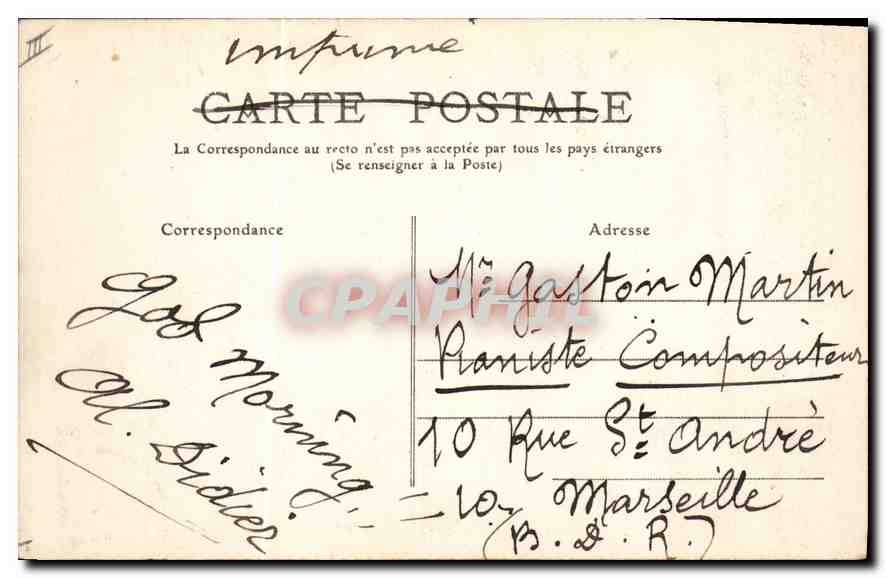 III
imprimé
CARTE POSTALE
La Correspondance au recto n'est pas acceptée par tous les pays étrangers
(Se renseigner à la Poste)
Correspondance
Adresse
God Morning.
Al. Didier
Mr Gaston Martin
Pianiste Compositeur
10 Rue St André
=10= Marseille
(B. d. R.)
CPAPHIL